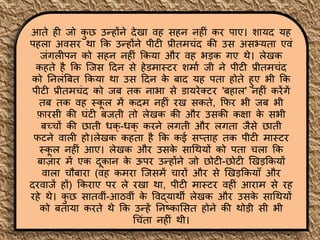 आते ही जो कुछ उन्होंने देखा वह सहन नहीं कर पाए। शायद यह
पहला अवसर था कि उन्होंने पीटी प्रीतमचंद की उस असभ्यता एवं
जंगलीपन को सहन नहीं किया और वह भड़क गए थे। लेखक
कहते है कि जिस दिन से हेडमास्टर शर्मा जी ने पीटी प्रीतमचंद
को निलंबित किया था उस दिन के बाद यह पता होते हुए भी कि
पीटी प्रीतमचंद को जब तक नाभा से डायरेक्टर 'बहाल' नहीं करेंगें
तब तक वह स्कूल में कदम नहीं रख सकते, फिर भी जब भी
फ़ारसी की घंटी बजती तो लेखक की और उसकी कक्षा के सभी
बच्चों की छाती धक्-धक् करने लगती और लगता जैसे छाती
फटने वाली हो।लेखक कहता है कि कई सप्ताह तक पीटी मास्टर
स्कूल नहीं आए। लेखक और उसके साथियों को पता चला कि
बाज़ार में एक दूकान के ऊपर उन्होंने जो छोटी-छोटी खिड़कियों
वाला चौबारा (वह कमरा जिसमें चारों और से खिड़कियाँ और
दरवाजें हों) किराए पर ले रखा था, पीटी मास्टर वहीं आराम से रह
रहे थे। कुछ सातवीं-आठवीं के विद्यार्थी लेखक और उसके साथियों
को बताया करते थे कि उन्हें निष्कासित होने की थोड़ी सी भी
चिंता नहीं थी।